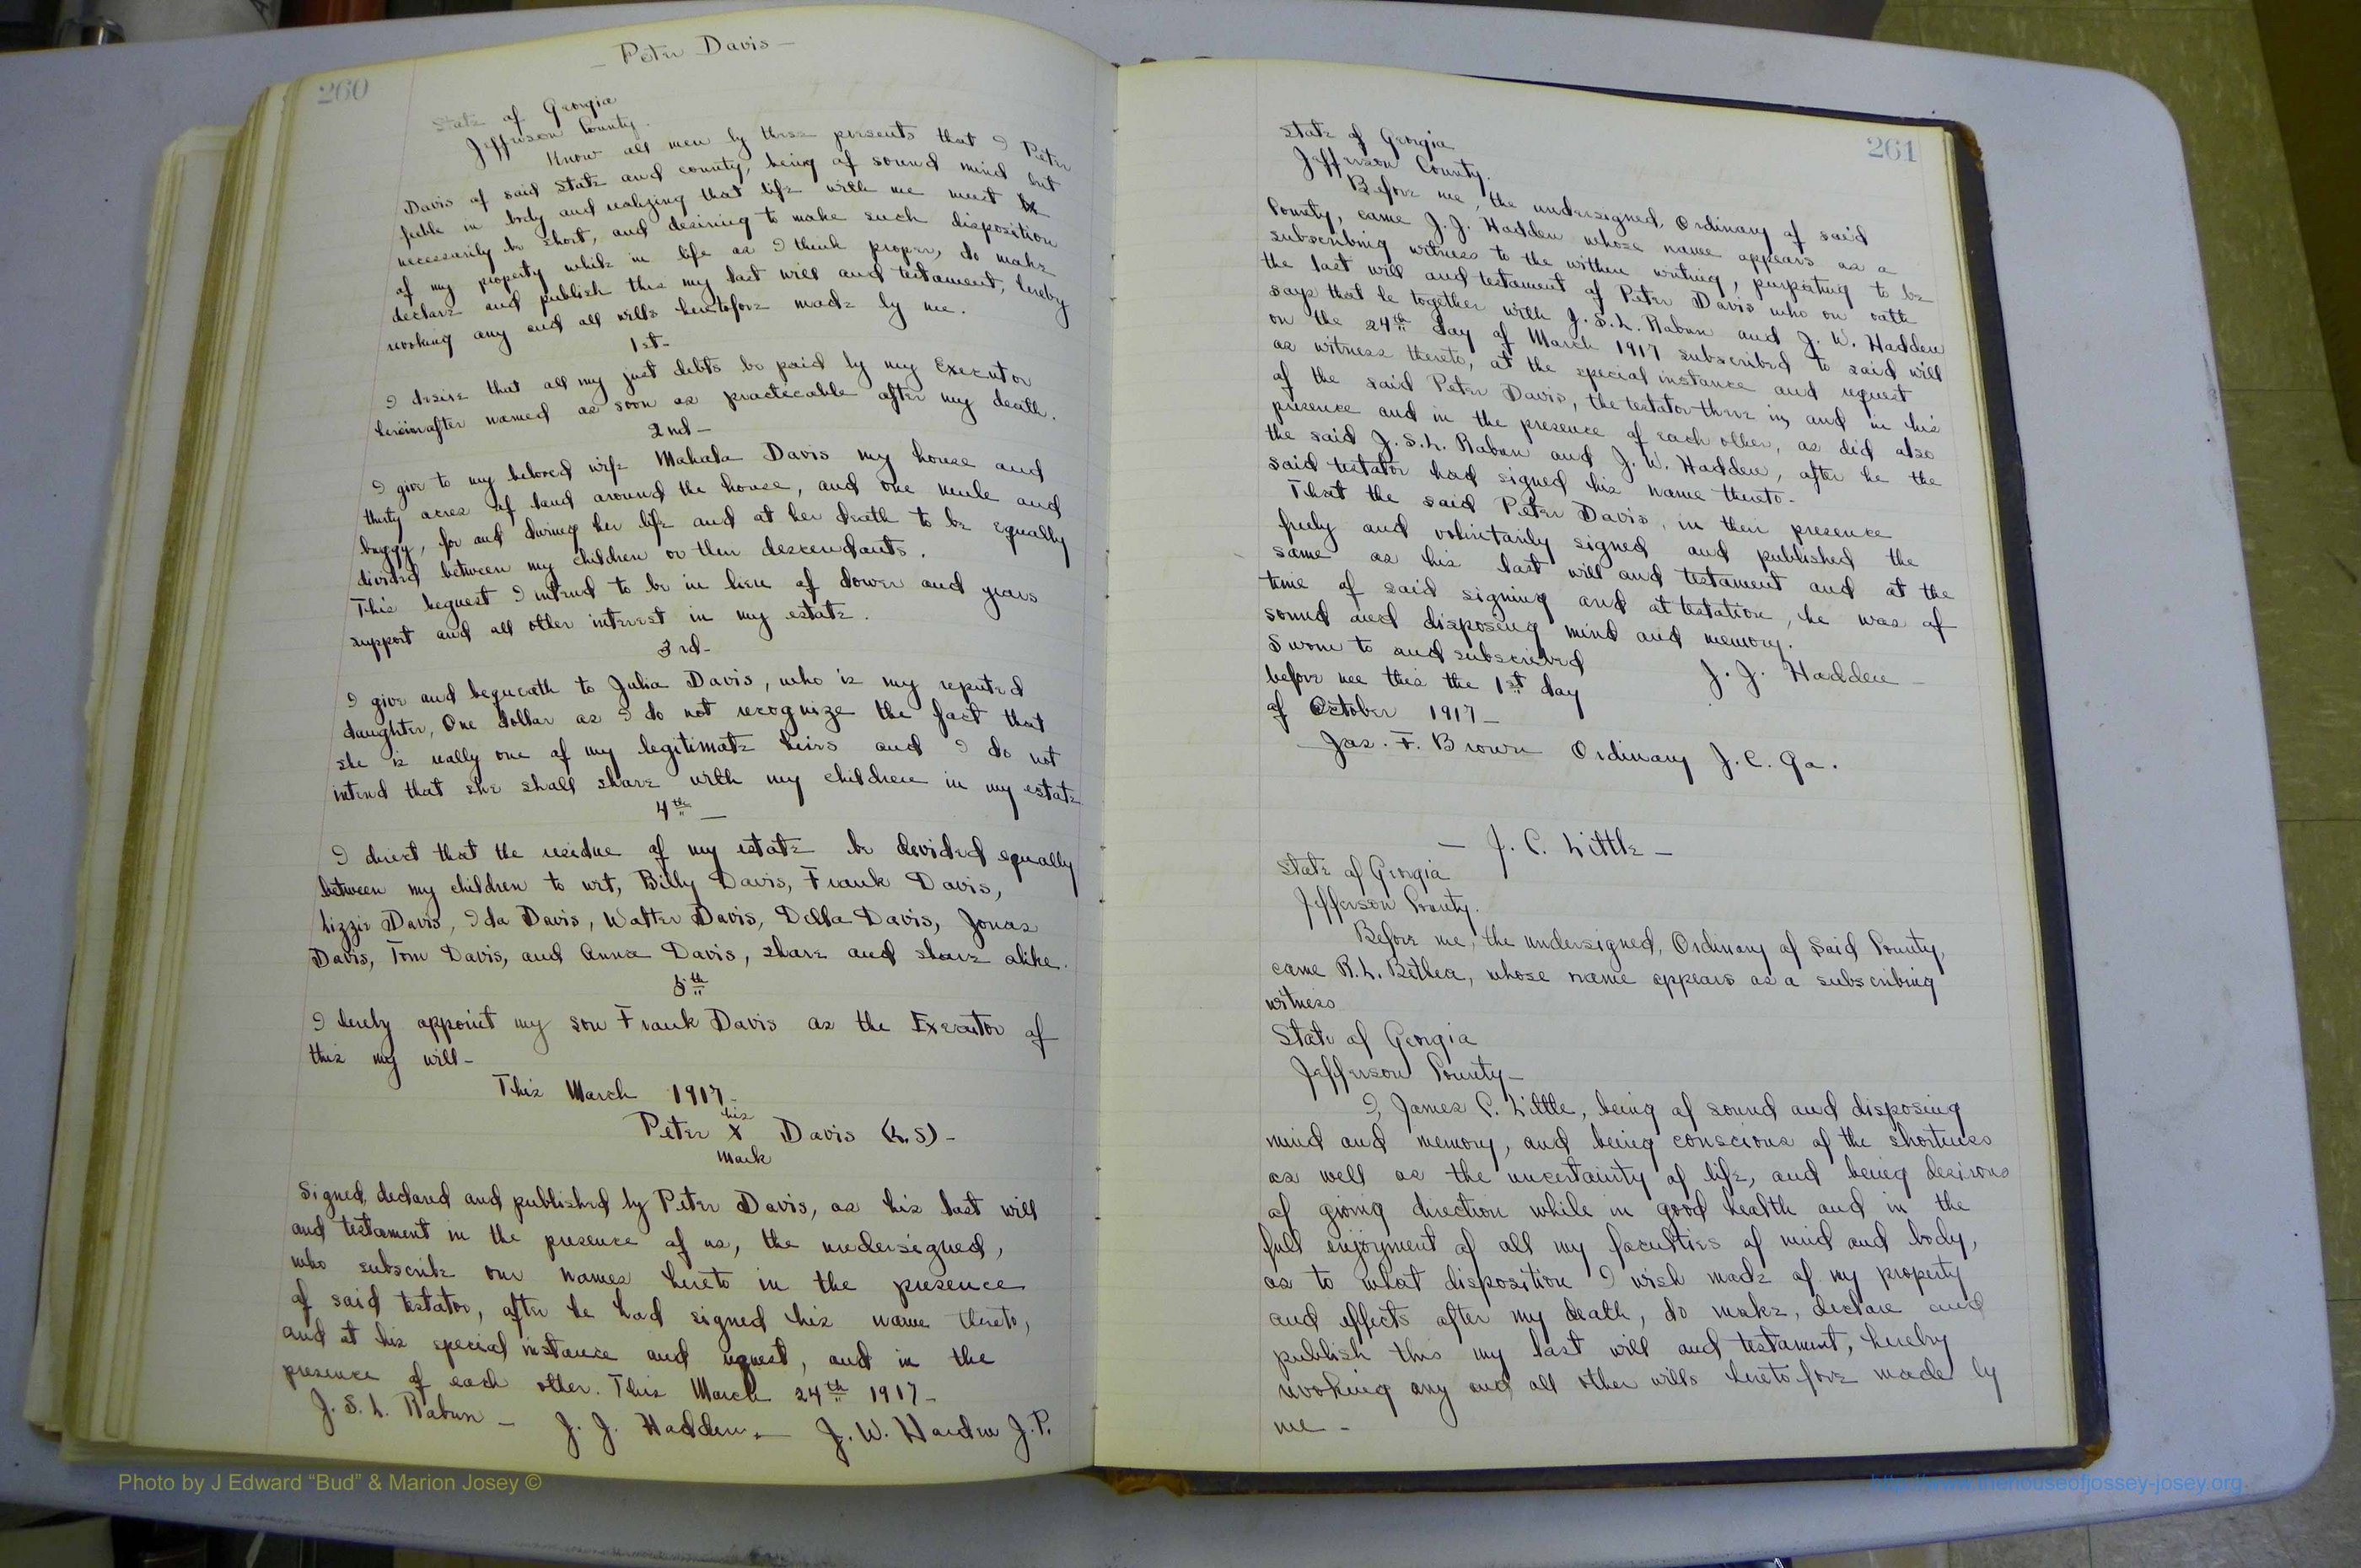 260
- Peter Davis -
State of Georgia
Jefferson County.
Know all men by these presents that I Peter
Davis of said State and county, being of sound mind but
feeble in body and realizing that life with me must be
necessarily be short, and desiring to make such disposition
of my property while in life as I think proper, do make
declare and publish this my last will and testament, hereby
revoking any and all wills heretofore made by me.
1st-
I desire that all my just debts be paid by my Executor
hereinafter named as soon as practecable after my death.
2nd-
I give to my beloved wife Mahala Davis my house and
thirty acres of land around the house, and one mule and
buggy, for and during her life and at her death to be equally
divided between my children or their descendants.
This bequest I intend to be in lieu of dower and years
support and all other interest in my estate.
3rd-
I give and bequeath to Julia Davis, who is my reputed
daughter, One dollar as I do not recognize the fact that
she is really one of my legitimate heirs and I do not
intend that she shall share with my children in my estate
4th -
I direct that the residue of my estate be devided equally
between my children to wit, Billy Davis, Frank Davis,
Lizzie Davis, Ida Davis, Walter Davis, Della Davis, Jonas
Davis, Tom Davis, and Anna Davis, share and share alike.
5th
I hereby appoint my son Frank Davis as the Executor of
this my will-
This March 1917-
his
Peter X Davis (L.S)-
mark
Signed, declared and published by Peter Davis, as his last will
and testament in the presence of us, the undersigned,
who subscribe our names hereto in the presence
of said testator, after he had signed his name thereto,
and at his special instance and request, and in the
presence of each other. This March 24th 1917-
J. S. L. Rabun - J. J. Hadden. - J. W. Hardin J. P.
261
State of Georgia
Jefferson County.
Before me, the undersigned, Ordinary of said
County, came J. J. Hadden whose name appears as a
subscribing witness to the within writing, purporting to be
the last will and testament of Peter Davis who on oath
says that he together with J. S. L. Rabun and J. W. Hadden
on the 24th day of March 1917 subscribed to said will
as witness thereto, at the special instance and request
of the said Peter Davis, the testator there in, and in his
presence and in the presence of each other, as did also
the said J. S. L. Rabun and J. W. Hadden, after he the
said testator had signed his name thereto-
That the said Peter Davis, in their presence
freely and voluntarily signed and published the
same as his last will and testament and at the
time of said signing and attestation, he was of
sound and disposing mind and memory.
Sworn to and subscribed
before me this the 1st day J. J. Hadden -
of October 1917-
Jas. F. Brown Ordinary J. C. Ga.
- J. C. Little -
State of Georgia
Jefferson County.
Before me, the undersigned, Ordinary of said County,
came R. L. Bethea, whose name appears as a subscribing
witness
State of Georgia
Jefferson County-
I, James C. Little, being of sound and disposing
mind and memory, and being conscious of the shortness
as well as the uncertainty of life, and being desirous
of giving direction while in good health and in the
full enjoyment of all my faculties of mind and body,
as to what disposition I wish made of my property
and effects after my death, do make, declare and
publish this my last will and testament, hereby
revoking any and all other wills heretofore made by
me -
Photo by J Edward “Bud” & Marion Josey ©
http://www.thehouseofjossey-josey.org